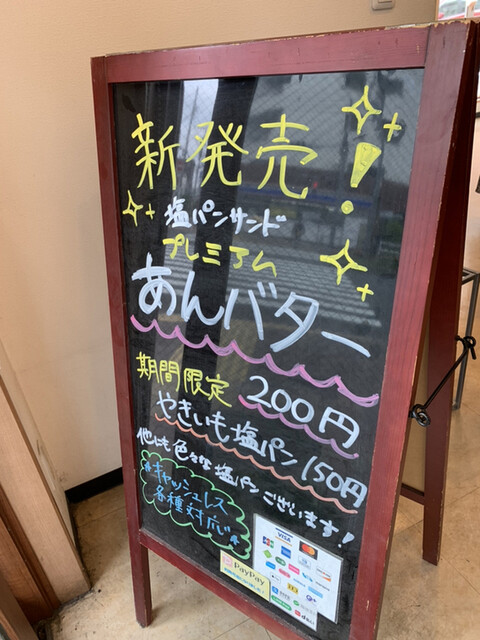 新発売!
塩パンサンド
プレミアム
あんバター
期間限定 200円
やきいも塩パン 150円
他にも色々な塩パンございます!
キャッシュレス
各種対応
VISA
PayPay